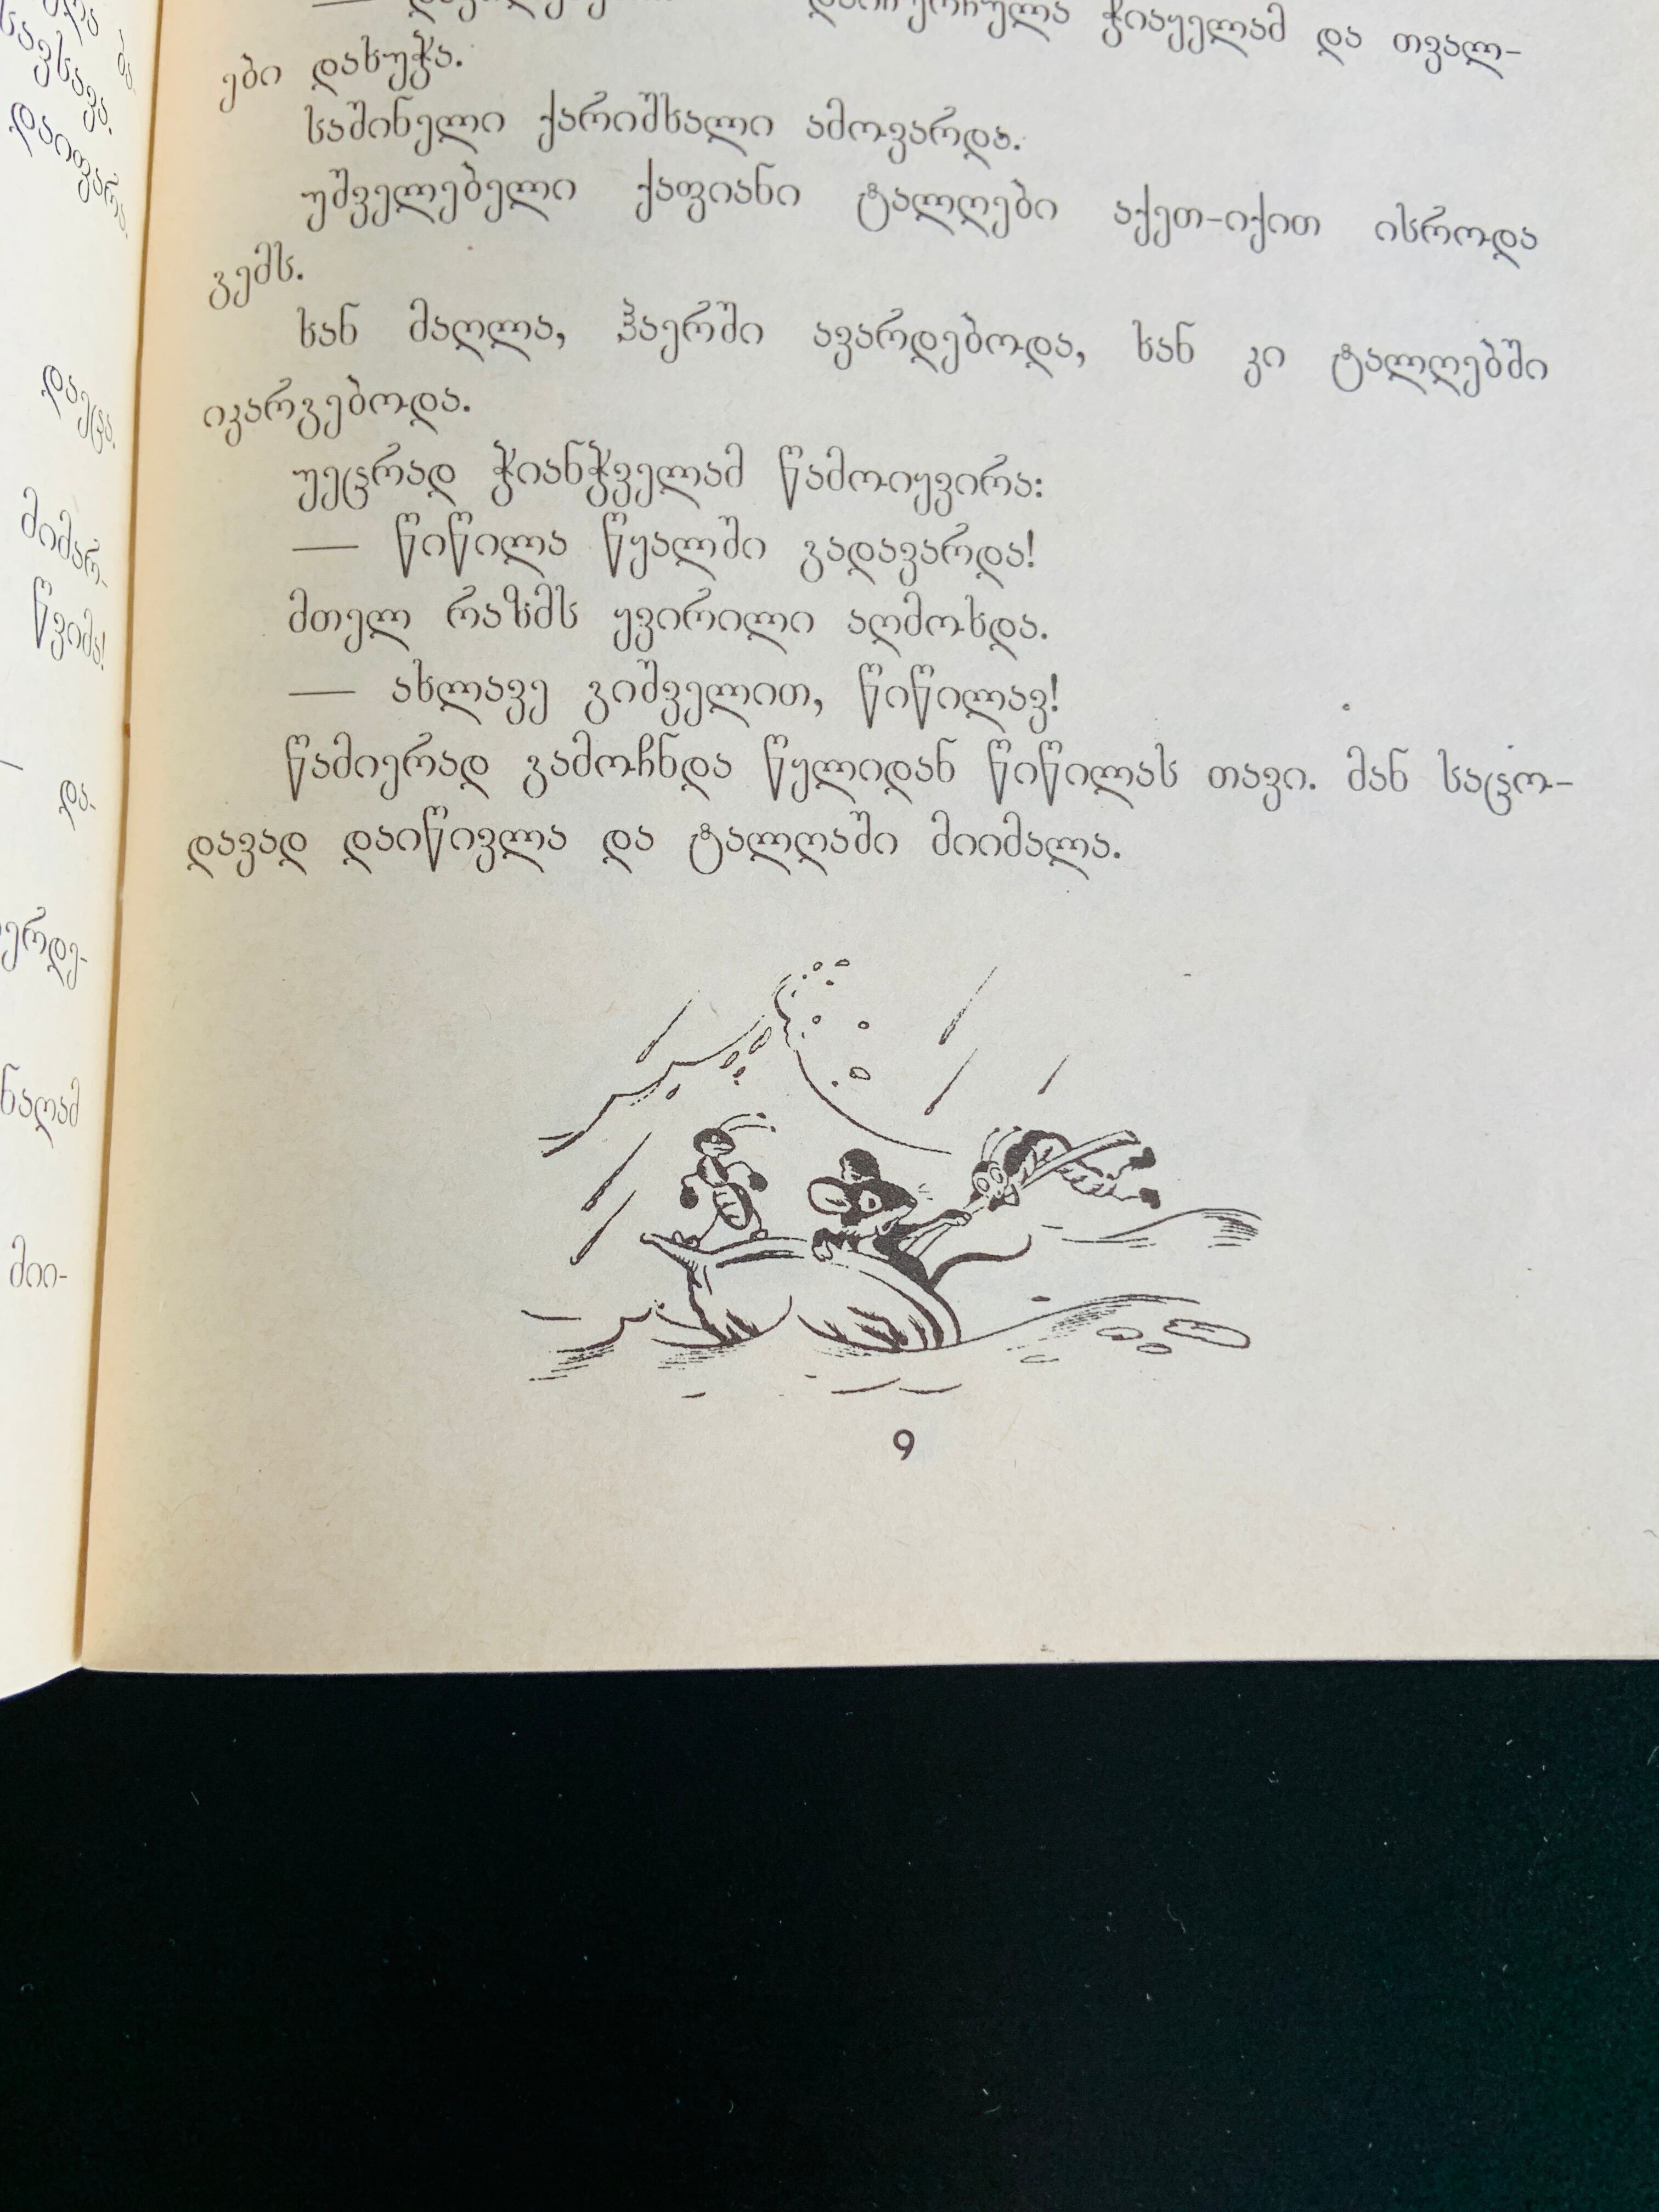 სავსავა.
დაიფარა
დაეცა.
მიმარ-
წვიმა!
და-
ერდე-
მიი-
დაიჩურჩულა ჭიაყელამ და თვალ-
ები დახუჭა.
საშინელი ქარიშხალი ამოვარდა.
უშველებელი ქაფიანი ტალღები აქეთ-იქით ისროდა
გემს.
ხან მაღლა, ჰაერში ავარდებოდა, ხან კი ტალღებში
იკარგებოდა.
უეცრად ჭიანჭველამ წამოიყვირა:
— წიწილა წყალში გადავარდა!
მთელ რაზმს ყვირილი აღმოხდა.
— ახლავე გიშველით, წიწილავ!
წამიერად გამოჩნდა წყლიდან წიწილას თავი. მან საცო-
დავად დაიწივლა და ტალღაში მიიმალა.
9